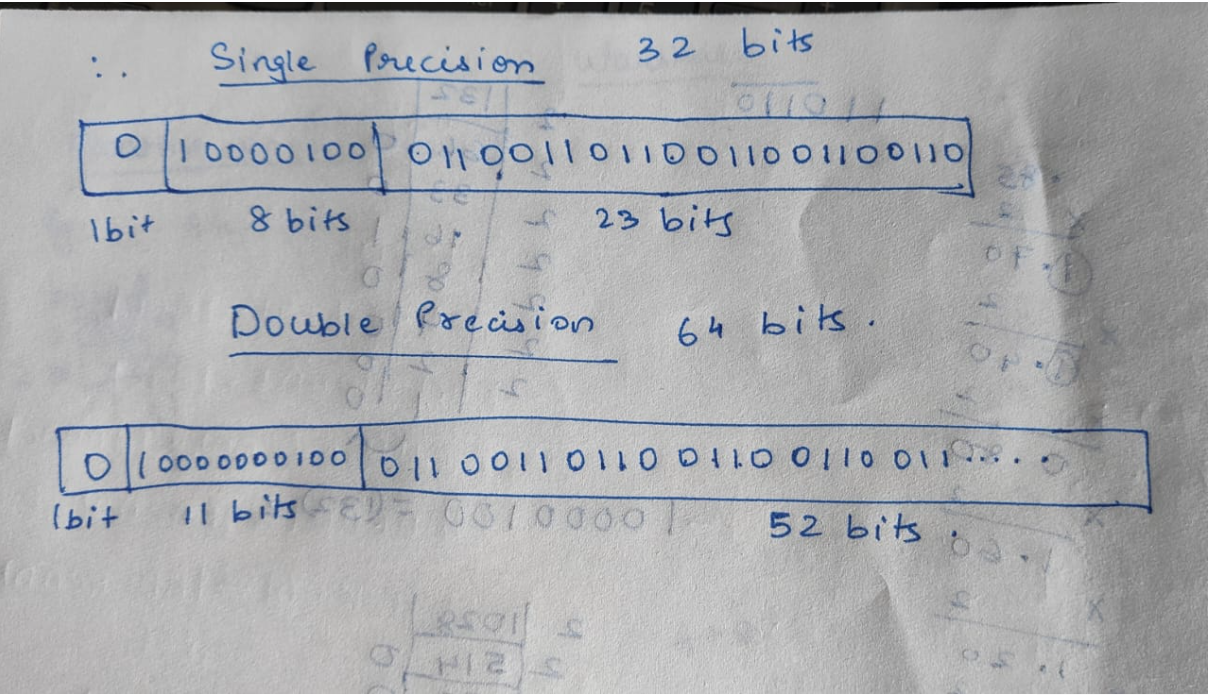 ∴ Single Precision 32 bits
0 10000100 01100110110011001100110
1bit 8 bits 23 bits
Double Precision 64 bits.
0 10000000100 011 0011 0110 0110 0110 011.....
1bit 11 bits 52 bits.